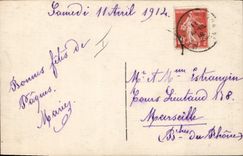 Samedi 11 Avril 1914
Bonnes fêtes de
Pâques.
Marie
M. et A. Mme Estrangin
Cours Lieutaud 178
Marseille
Bches du Rhône